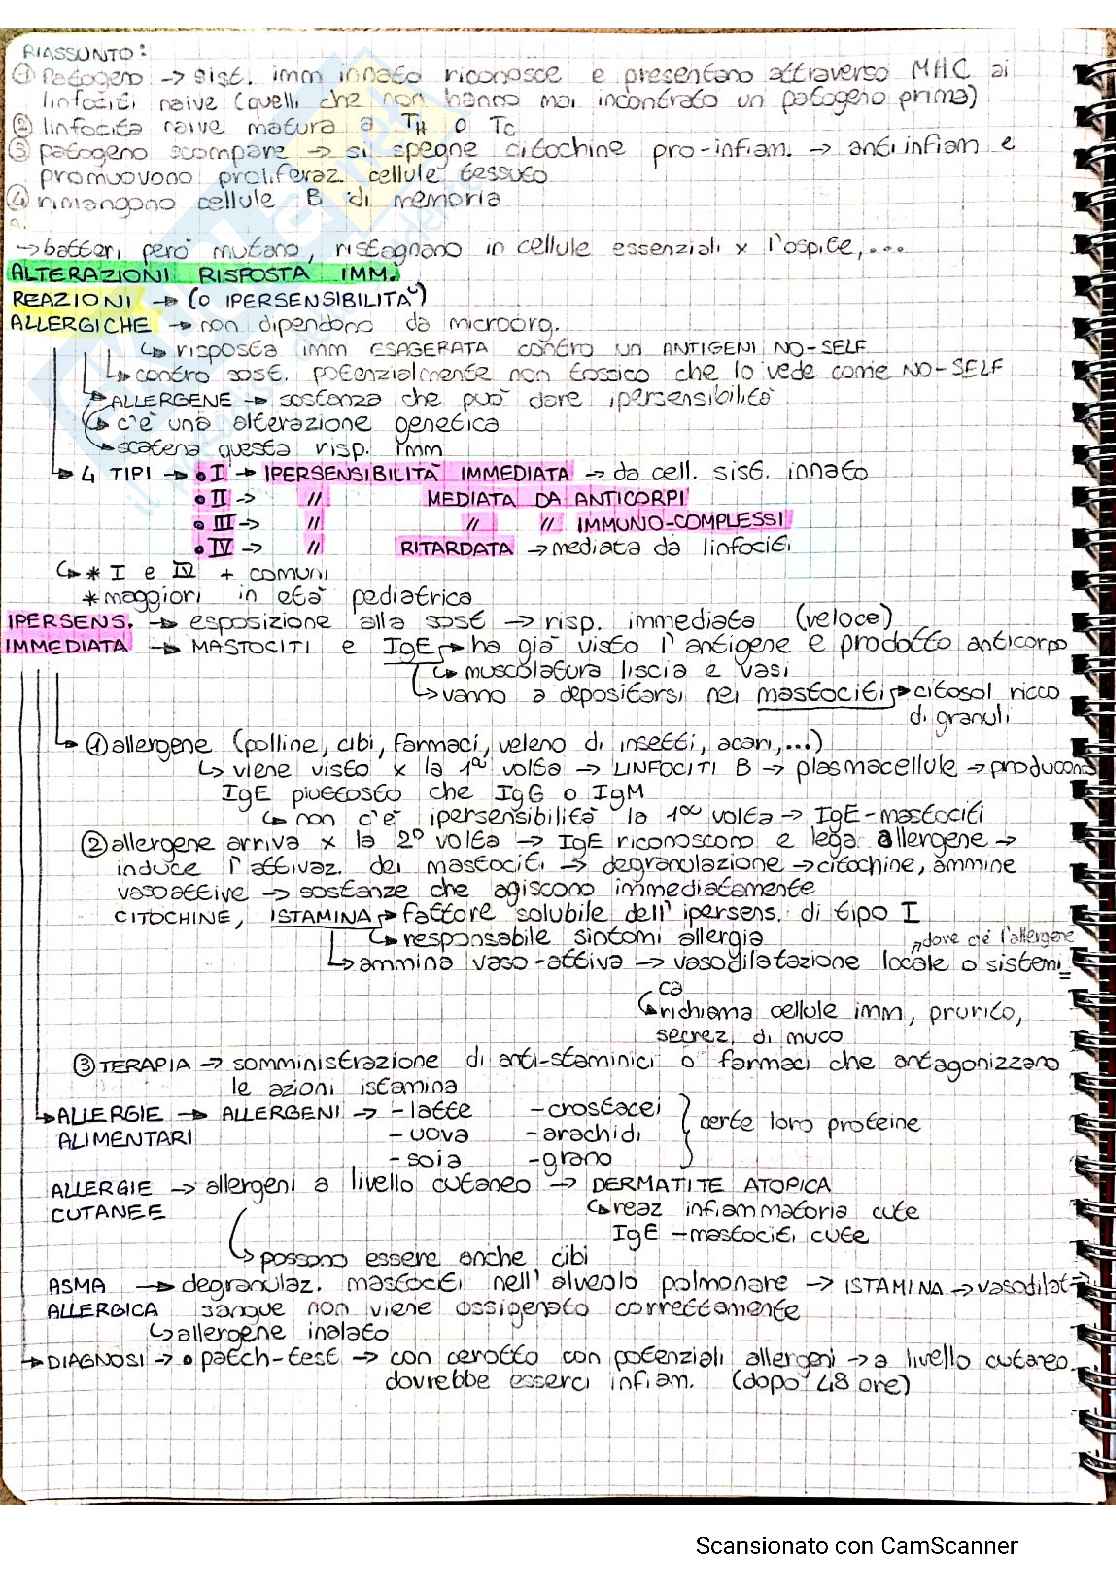 RIASSUNTO:
① Patogeno → sist. imm innato riconosce e presentano attraverso MHC ai
linfociti naive (quelli che non hanno mai incontrato un patogeno prima)
② linfocita naive matura a TH o Tc
③ patogeno scompare → si spegne citochine pro-infiam. → anti infiam e
promuovono proliferaz. cellule tessuto
④ rimangono cellule B di memoria
→ batteri però mutano, ristagnano in cellule essenziali x l'ospite,...
ALTERAZIONI RISPOSTA IMM.
REAZIONI → (O IPERSENSIBILITA')
ALLERGICHE → non dipendono da microorg.
↳ risposta imm ESAGERATA contro un ANTIGENI NO-SELF
↳ contro sost. potenzialmente non tossico che lo vede come NO-SELF
↳ ALLERGENE → sostanza che può dare ipersensibilità
↳ c'è una alterazione genetica
↳ scatena questa risp. imm
↳ 4 TIPI → • I → IPERSENSIBILITÀ IMMEDIATA → da cell. sist. innato
• II → // MEDIATA DA ANTICORPI
• III → // // // IMMUNO-COMPLESSI
• IV → // RITARDATA → mediata da linfociti
↳ * I e IV + comuni
* maggiori in età pediatrica
IPERSENS. → esposizione alla sost → risp. immediata (veloce)
IMMEDIATA → MASTOCITI e IgE → ha già visto l'antigene e prodotto anticorpo
↳ muscolatura liscia e vasi
↳ vanno a depositarsi nei mastociti → citosol ricco
di granuli
↳ ① allergene (polline, cibi, farmaci, veleno di insetti, acari,...)
↳ viene visto x la 1ª volta → LINFOCITI B → plasmacellule → producono
IgE piuttosto che IgG o IgM
↳ non c'è ipersensibilità la 1ª volta → IgE-mastociti
② allergene arriva x la 2º volta → IgE riconoscono e lega allergene →
induce l'attivaz. dei mastociti → degranulazione → citochine, ammine
vasoattive → sostanze che agiscono immediatamente
CITOCHINE, ISTAMINA → fattore solubile dell'ipersens. di tipo I
↳ responsabile sintomi allergia
dove c'è l'allergene
↳ ammina vaso-attiva → vasodilatazione locale o sistemi=
ca
↳ richiama cellule imm, prurito,
secrez. di muco
③ TERAPIA → somministrazione di anti-staminici o farmaci che antagonizzano
le azioni istamina
↳ ALLERGIE → ALLERGENI → - latte - crostacei
ALIMENTARI - uova - arachidi } certe loro proteine
- soia - grano
ALLERGIE → allergeni a livello cutaneo → DERMATITE ATOPICA
CUTANEE ↳ reaz infiammatoria cute
IgE - mastociti cute
↳ possono essere anche cibi
ASMA → degranulaz. mastociti nell'alveolo polmonare → ISTAMINA → vasodilat →
ALLERGICA sangue non viene ossigenato correttamente
↳ allergene inalato
→ DIAGNOSI → • patch-test → con cerotto con potenziali allergeni → a livello cutaneo
dovrebbe esserci infiam. (dopo 48 ore)
Scansionato con CamScanner